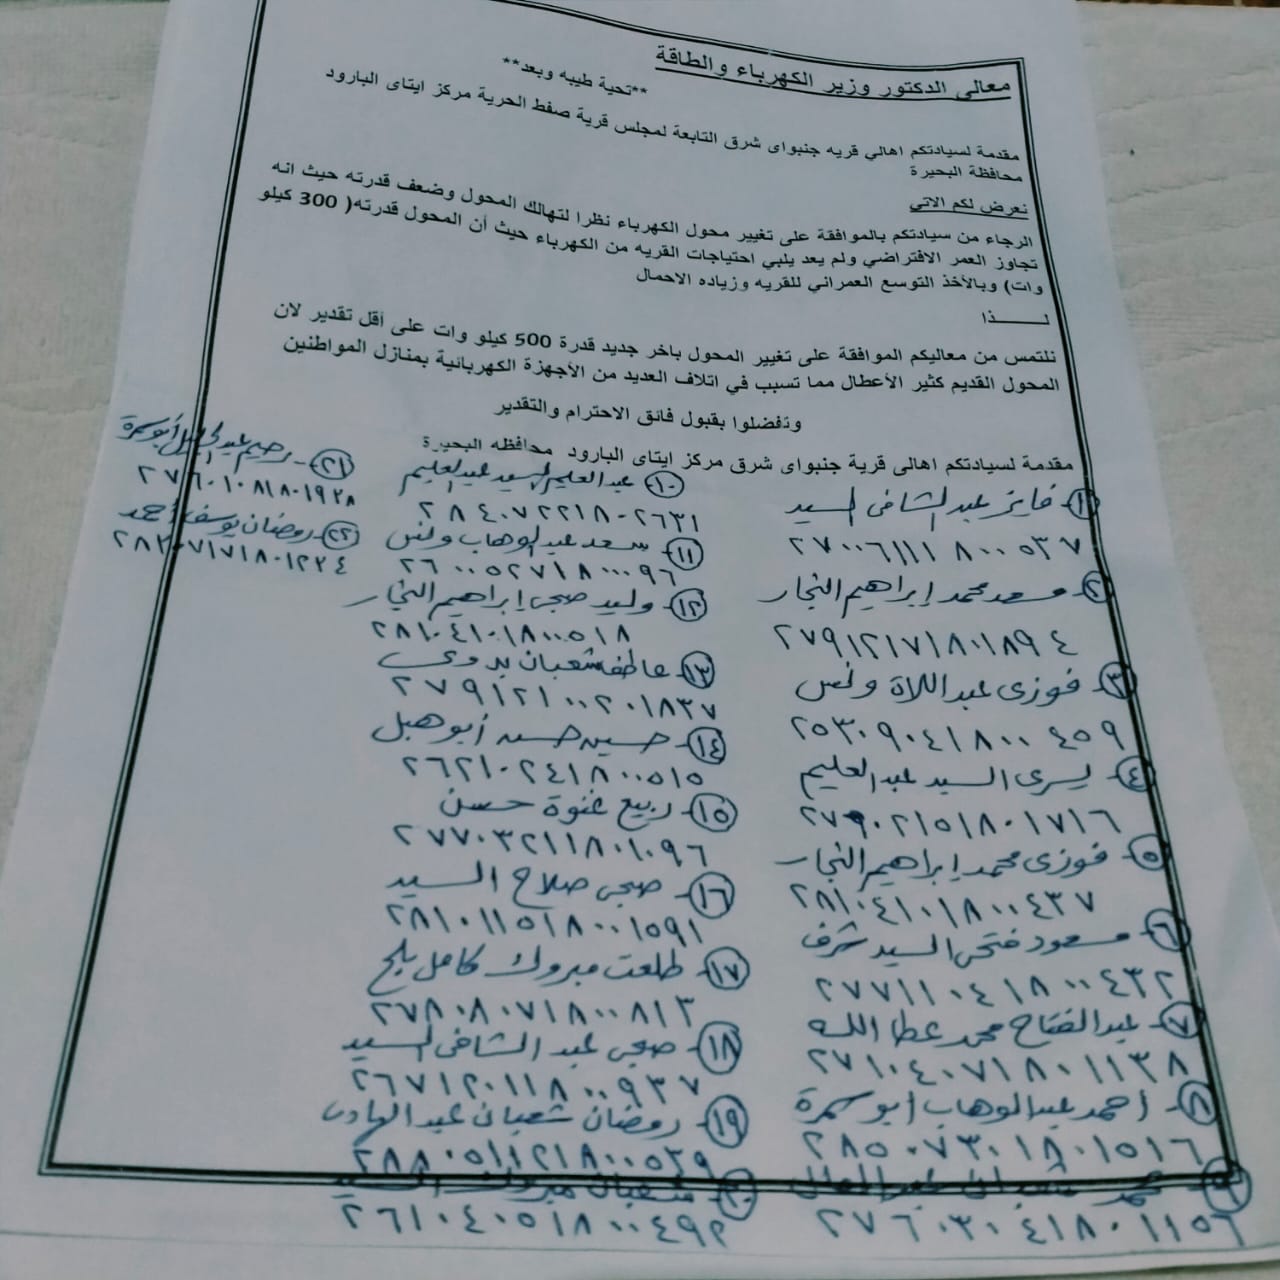 معالى الدكتور وزير الكهرباء والطاقة
**تحية طيبه وبعد**
مقدمة لسيادتكم اهالي قريه جنبواى شرق التابعة لمجلس قرية صفط الحرية مركز ايتاى البارود
محافظة البحيرة
نعرض لكم الاتي
الرجاء من سيادتكم بالموافقة على تغيير محول الكهرباء نظرا لتهالك المحول وضعف قدرته حيث انه
تجاوز العمر الافتراضي ولم يعد يلبي احتياجات القريه من الكهرباء حيث أن المحول قدرته( 300 كيلو
وات) وبالأخذ التوسع العمراني للقريه وزياده الاحمال
لـــــــذا
نلتمس من معاليكم الموافقة على تغيير المحول باخر جديد قدرة 500 كيلو وات على أقل تقدير لان
المحول القديم كثير الأعطال مما تسبب في اتلاف العديد من الأجهزة الكهربائية بمنازل المواطنين
وتفضلوا بقبول فائق الاحترام والتقدير
مقدمة لسيادتكم اهالى قرية جنبواى شرق مركز ايتاى البارود محافظه البحيرة
١- فايز عبد الشافى السيد
٢٧٠٠٦١١١٨٠٠٥٣٧
٢- مسعد محمد إبراهيم النجار
٢٧٩١٢١٧١٨٠١٨٩٤
٣- فوزى عبداللاة ونس
٢٥٣٠٩٠٤١٨٠٠٤٥٩
٤- يسرى السيد عبد العليم
٢٧٩٠٢١٥١٨٠١٧١٦
٥- فوزى محمد إبراهيم النجار
٢٨١٠٤١٠١٨٠٠٤٣٧
٦- مسعود فتحى السيد شرف
٢٧٧١١٠٤١٨٠٠٤٣٢
٧- عبد الفتاح محمد عطا الله
٢٧١٠٤٠٧١٨٠١١٣٨
٨- احمد عبد الوهاب ابو سمرة
٢٨٥٠٧٣٠١٨٠١٥١٦
٩- محمد
٢٧٦٠٣٠٤١٨٠١١٥٦
١٠- عبد العليم السيد عبد العليم
٢٨٤٠٧٢٢١٨٠٢٦٣١
١١- سعد عبد الوهاب ونس
٢٦٠٠٥٢٧١٨٠٠٠٩٦
١٢- وليد صبحى إبراهيم النجار
٢٨١٠٤١٠١٨٠٠٥١٨
١٣- عاطف شعبان بدوى
٢٧٩١٢١٠٠٢٠١٨٣٧
١٤- حسين حسن أبو هبل
٢٦٢١٠٢٤١٨٠٠٥١٥
١٥- ربيع غنوة حسن
٢٧٧٠٣٢١١٨٠١٠٩٦
١٦- صبحى صلاح السيد
٢٨١٠١١٥١٨٠٠١٥٩١
١٧- طلعت مبروك كامل بلح
٢٦٧٨٠٨٠٧١٨٠٠٨١٣
١٨- صبحى عبد الشافى السيد
٢٦٧١٢٠١١٨٠٠٩٣٧
١٩- رمضان شعبان عبد الهادى
٢٨٨٠٥١١٢١٨٠٠٥٣٩
٢٠- شعبان مبروك السيد
٢٦١٠٤٠٥١٨٠٠٤٩٢
٢١- رحيم أبو سمرة
٢٧٦٠١٠٨١٨٠١٩٢٨
٢٢- رمضان يوسف أحمد
٢٨٢٠٧١٧١٨٠١٢٣٤